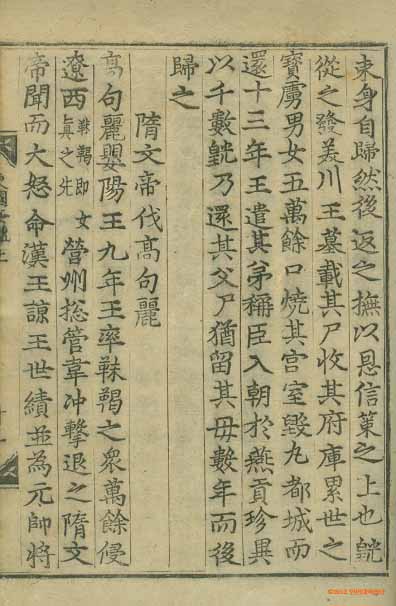 束身自歸然後返之撫以恩信策之上也皝
從之發美川王墓載其尸收其府庫累世之
寶虜男女五萬餘口燒其宮室毀丸都城而
還十三年王遣其弟稱臣入朝於燕貢珍異
以千數皝乃還其父尸猶留其母數年而後
歸之
隋文帝伐高句麗
高句麗嬰陽王九年王率靺鞨之衆萬餘侵
遼西靺鞨即女眞之先營州摠管韋冲擊退之隋文
帝聞而大怒命漢王諒王世績並為元帥將